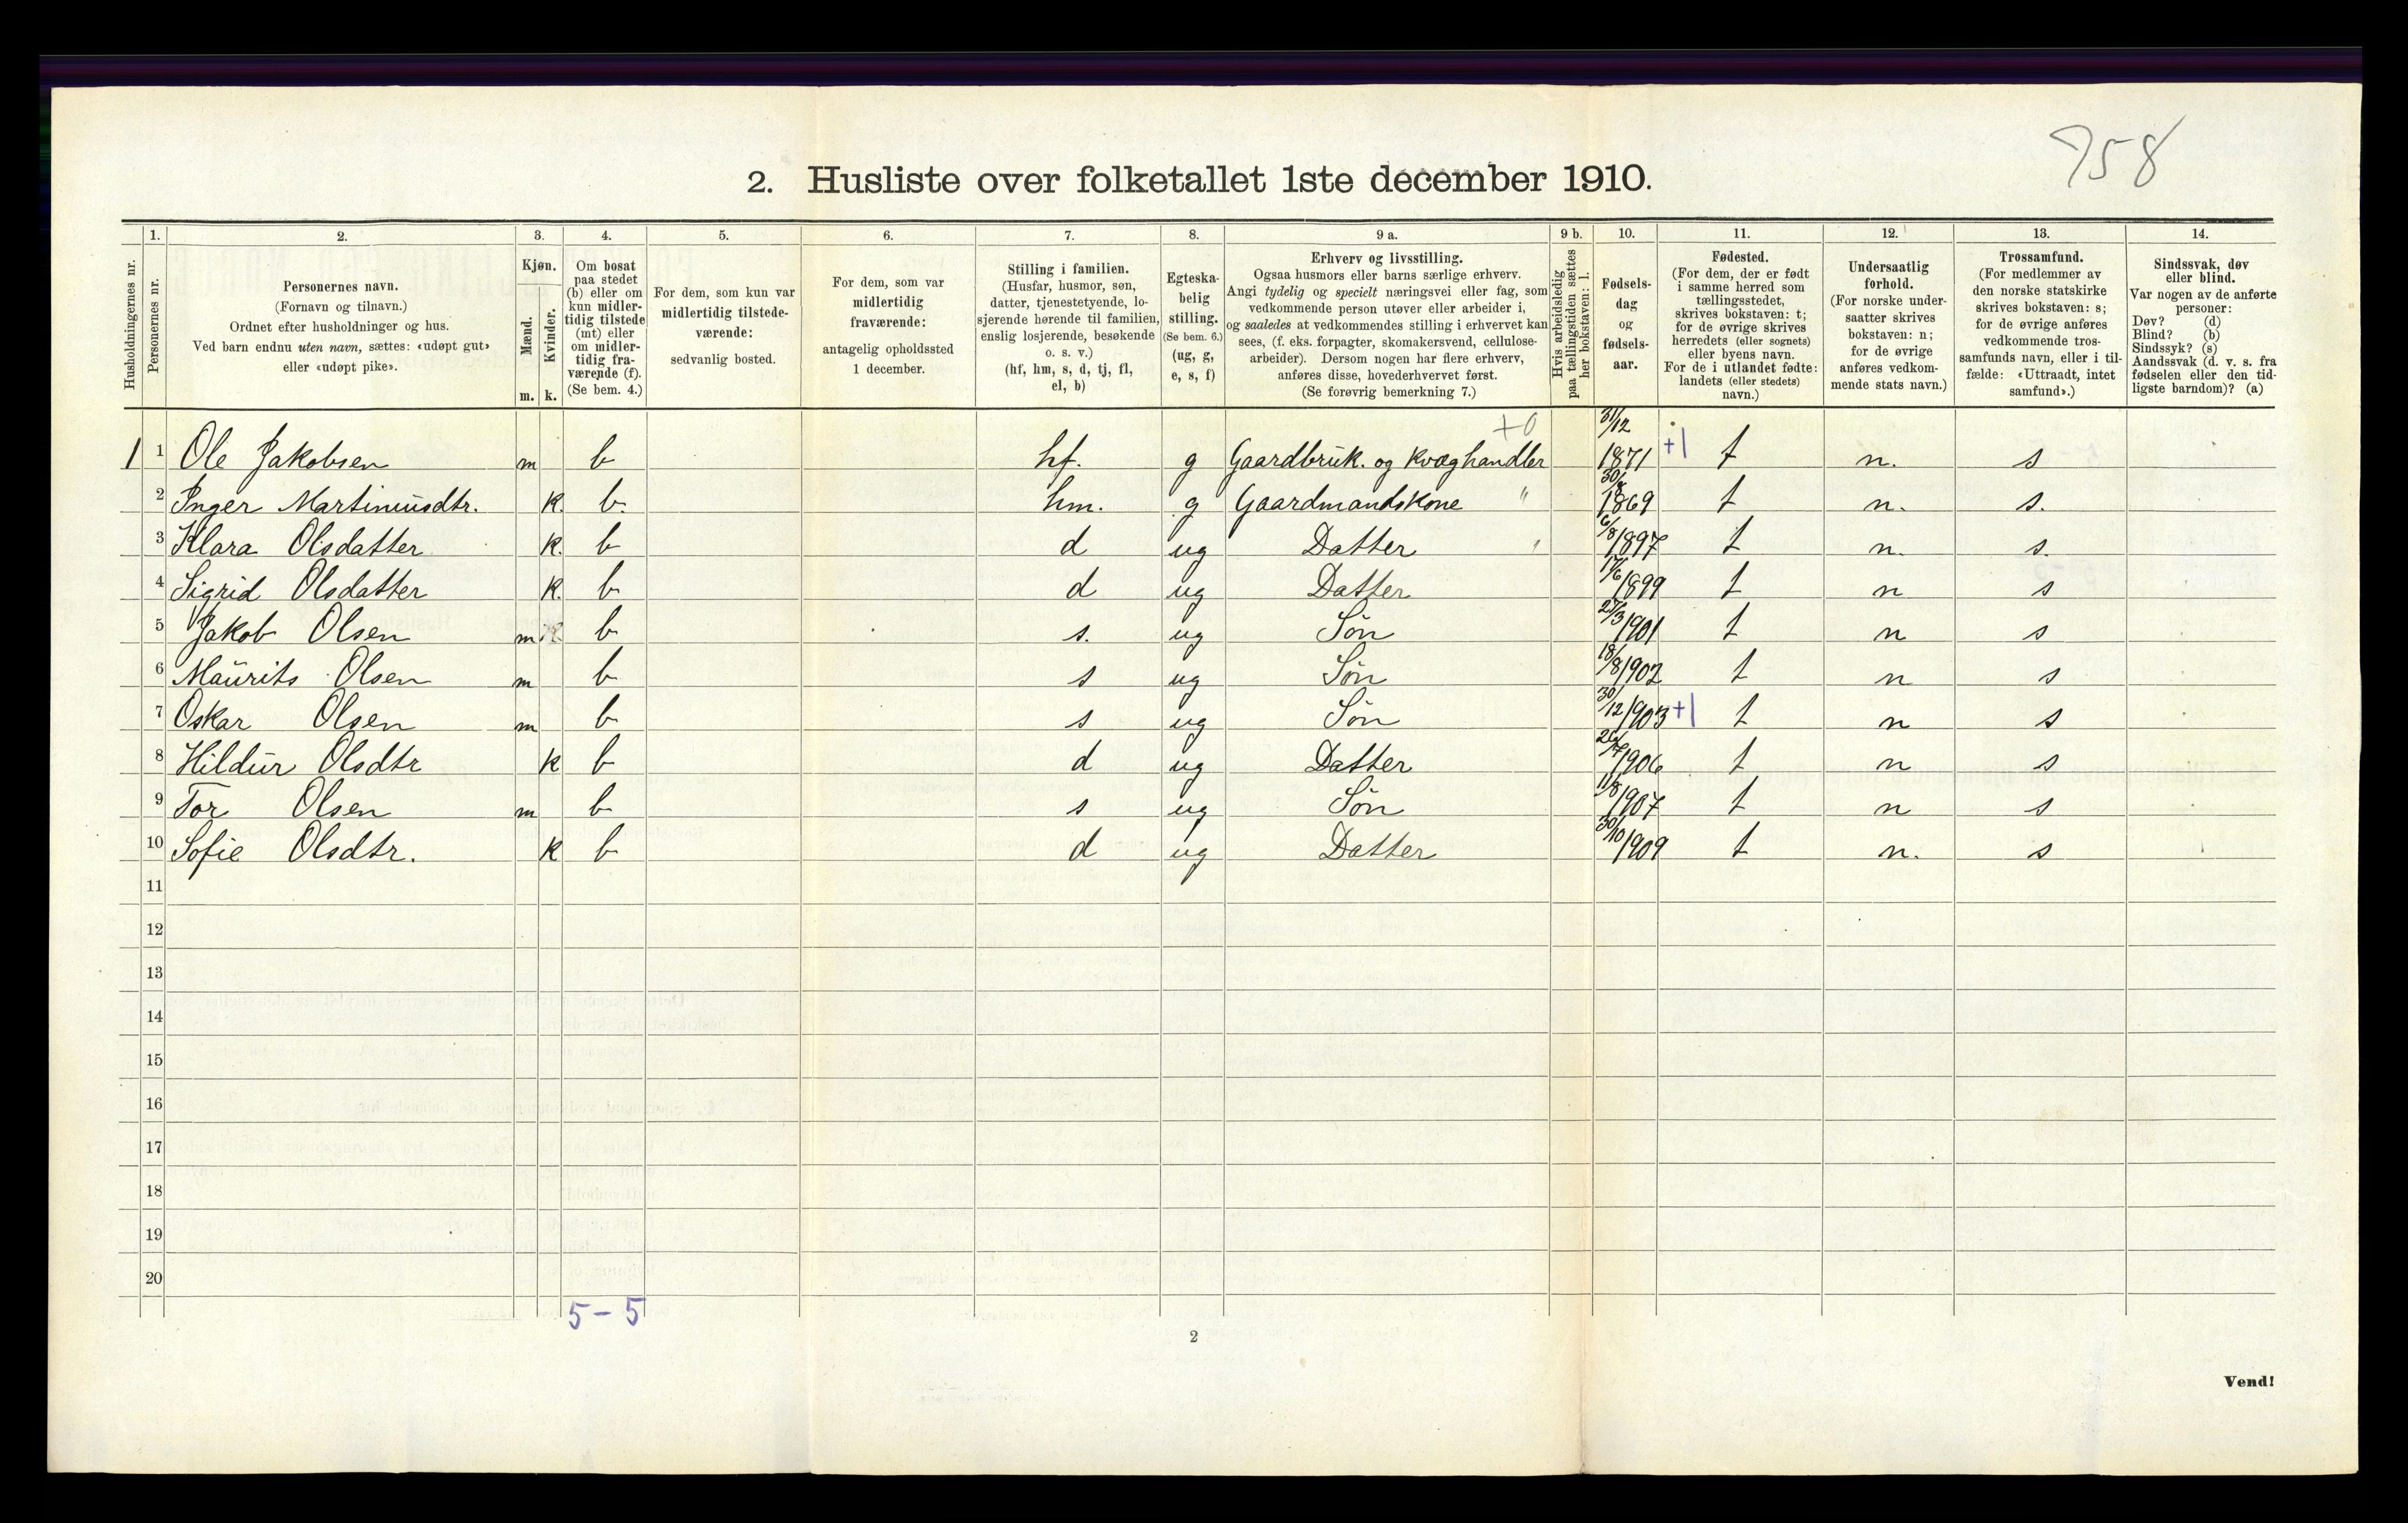 758
2. Husliste over folketallet 1ste december 1910.
Husholdningernes nr.
1.
Personernes nr.
2.
Personernes navn.
(Fornavn og tilnavn.)
Ordnet efter husholdninger og hus.
Ved barn endnu uten navn, sættes: «udøpt gut»
eller «udøpt pike».
3.
Kjøn.
Mænd.
Kvinder.
m. k.
4.
Om bosat
paa stedet
(b) eller om
kun midler-
tidig tilstede
(mt) eller
om midler-
tidig fra-
værende (f).
(Se bem. 4.)
5.
For dem, som kun var
midlertidig tilstede-
værende:
sedvanlig bosted.
6.
For dem, som var
midlertidig
fraværende:
antagelig opholdssted
1 december.
7.
Stilling i familien.
(Husfar, husmor, søn,
datter, tjenestetyende, lo-
sjerende hørende til familien,
enslig losjerende, besøkende
o. s. v.)
(hf, hm, s, d, tj, fl,
el, b)
8.
Egteska-
belig
stilling.
(Se bem. 6.)
(ug, g,
e, s, f)
9 a.
Erhverv og livsstilling.
Ogsaa husmors eller barns særlige erhverv.
Angi tydelig og specielt næringsvei eller fag, som
vedkommende person utøver eller arbeider i,
og saaledes at vedkommendes stilling i erhvervet kan
sees, (f. eks. forpagter, skomakersvend, cellulose-
arbeider). Dersom nogen har flere erhverv,
anføres disse, hovederhvervet først.
(Se forøvrig bemerkning 7.)
9 b.
Hvis arbeidsledig
paa tællingstiden sættes
her bokstaven: l.
10.
Fødsels-
dag
og
fødsels-
aar.
11.
Fødested.
(For dem, der er født
i samme herred som
tællingsstedet,
skrives bokstaven: t;
for de øvrige skrives
herredets (eller sognets)
eller byens navn.
For de i utlandet fødte:
landets (eller stedets)
navn.)
12.
Undersaatlig
forhold.
(For norske under-
saatter skrives
bokstaven: n;
for de øvrige
anføres vedkom-
mende stats navn.)
13.
Trossamfund.
(For medlemmer av
den norske statskirke
skrives bokstaven: s;
for de øvrige anføres
vedkommende tros-
samfunds navn, eller i til-
fælde: «Uttraadt, intet
samfund».)
14.
Sindssvak, døv
eller blind.
Var nogen av de anførte
personer:
Døv? (d)
Blind? (b)
Sindssyk? (s)
Aandssvak (d. v. s. fra
fødselen eller den tid-
ligste barndom)? (a)
+0
1 1 Ole Jakobsen m b hf. g Gaardbruk. og Kvæghandler 31/12 1871 +1 t n. s
2 Inger Martiniusdtr. k. b. hm. g Gaardmandskone " 1869 t n. s.
3 Klara Olsdatter k. b d ug Datter 6/8 1897 t n. s.
4 Sigrid Olsdatter k. b d ug Datter 17/6 1899 t n s
5 Jakob Olsen m b s. ug Søn 27/3 1901 t n s
6 Maurits Olsen m b s ug Søn 18/8 1902 t n s
7 Oskar Olsen m b s ug Søn 30/12 1903 +1 t n s
8 Hildur Olsdtr k b d ug Datter 1906 t n s
9 Tor Olsen m b s ug Søn 11/8 1907 t n s
10 Sofie Olsdtr. k b d ug Datter 30/10 1909 t n. s
11
12
13
14
15
16
17
18
19
20
5 - 5
2
Vend!